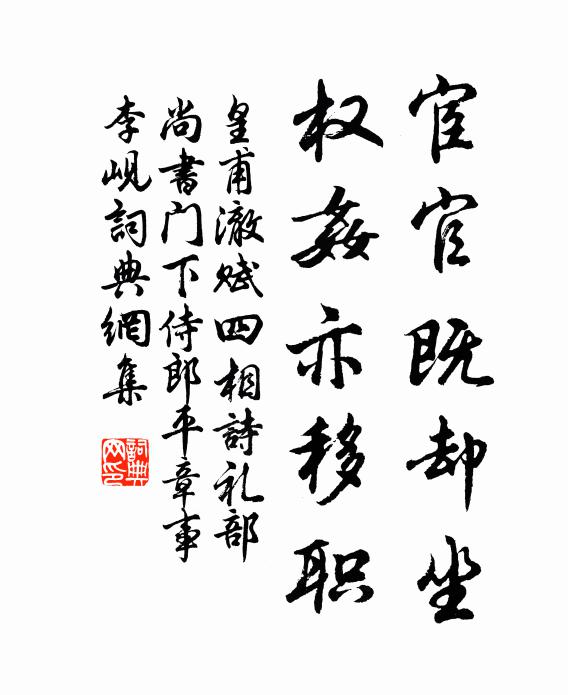 宦官既却坐
权奸亦移职
皇甫澈赋四相詩礼部
尚書门下侍郎平章事
李岘詞典網集
詞典网印